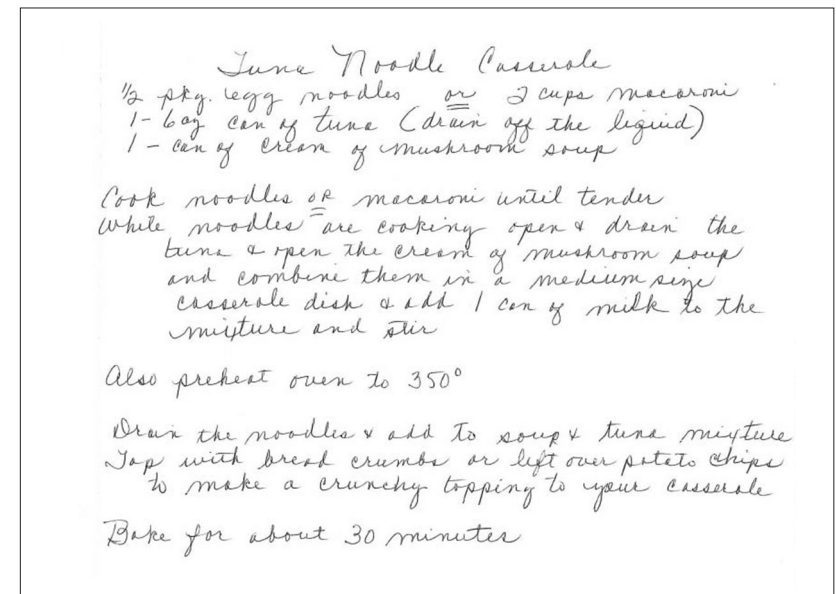 Tuna Noodle Casserole
1/2 pkg. egg noodles or 2 cups macaroni
1- 6oz can of tuna (drain off the liquid)
1 - can of cream of mushroom soup
Cook noodles OR macaroni until tender
While noodles are cooking open & drain the
tuna & open the cream of mushroom soup
and combine them in a medium size
casserole dish & add 1 can of milk to the
mixture and stir
Also preheat oven to 350°
Drain the noodles & add to soup & tuna mixture
Top with bread crumbs or left over potato chips
to make a crunchy topping to your casserole
Bake for about 30 minutes